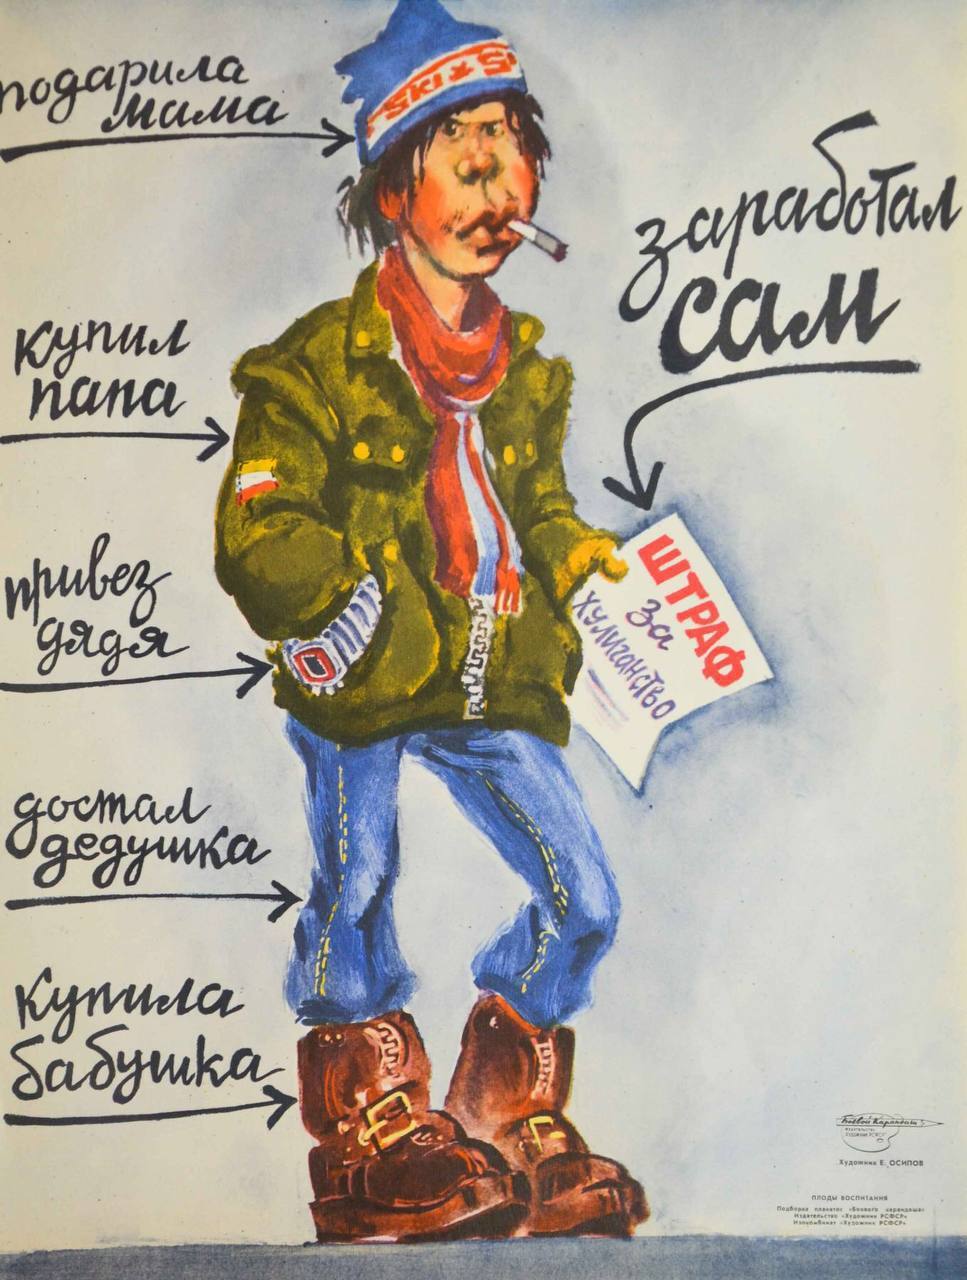 подарила
мама
SKI & S
купил
папа
привез
дядя
достал
дедушка
купила
бабушка
заработал
сам
ШТРАФ
за
хулиганство
Боевой Карандаш
ИЗДАТЕЛЬСТВО
ХУДОЖНИК РСФСР
Художник Е. ОСИПОВ
ПЛОДЫ ВОСПИТАНИЯ
Подборка плакатов «Боевого карандаша»
Издательство «Художник РСФСР»
Изокомбинат «Художник РСФСР»